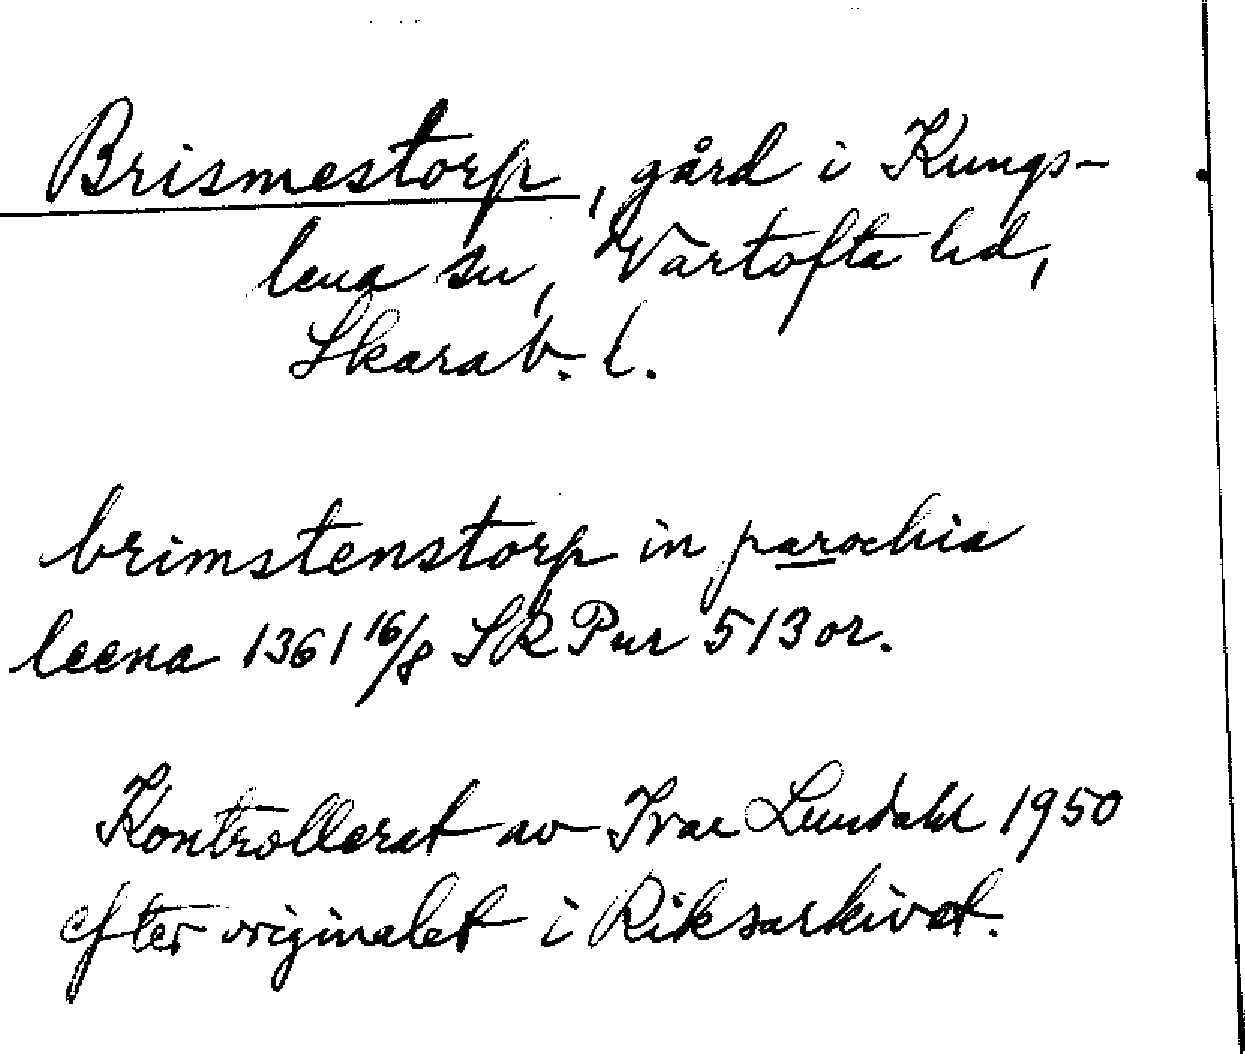 Brismestorp, gård i Kungs-
lena sn, Vartofta hd,
Skarab. l.
brimstenstorp in parochia
leena 1361 16/8 SR Pur 513 or.
Kontrollerat av Ivar Lundahl 1950
efter originalet i Riksarkivet.